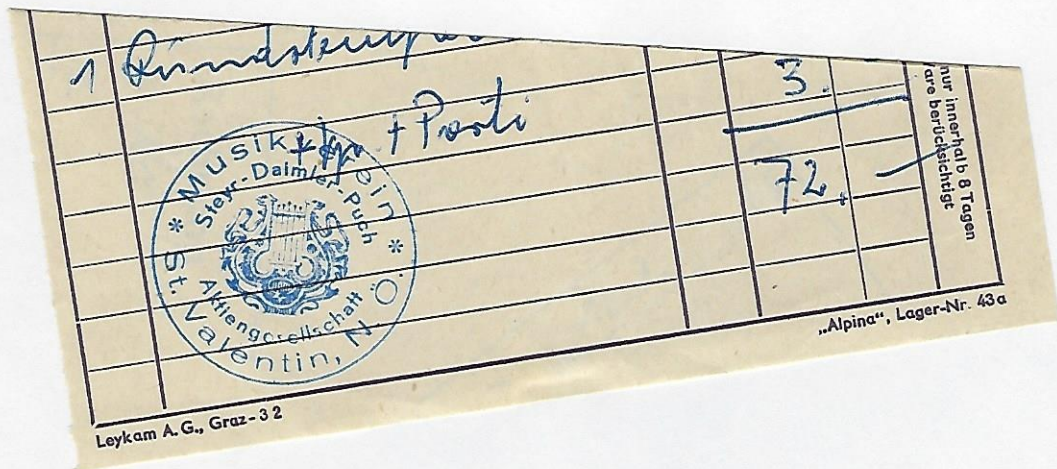 1
+ Porti 3.
72.
nur innerhalb 8 Tagen
are berücksichtigt
* Musikverein *
Steyr-Daimler-Puch
Aktiengesellschaft
St. Valentin, N. Ö.
„Alpina“, Lager-Nr. 43a
Leykam A. G., Graz-32